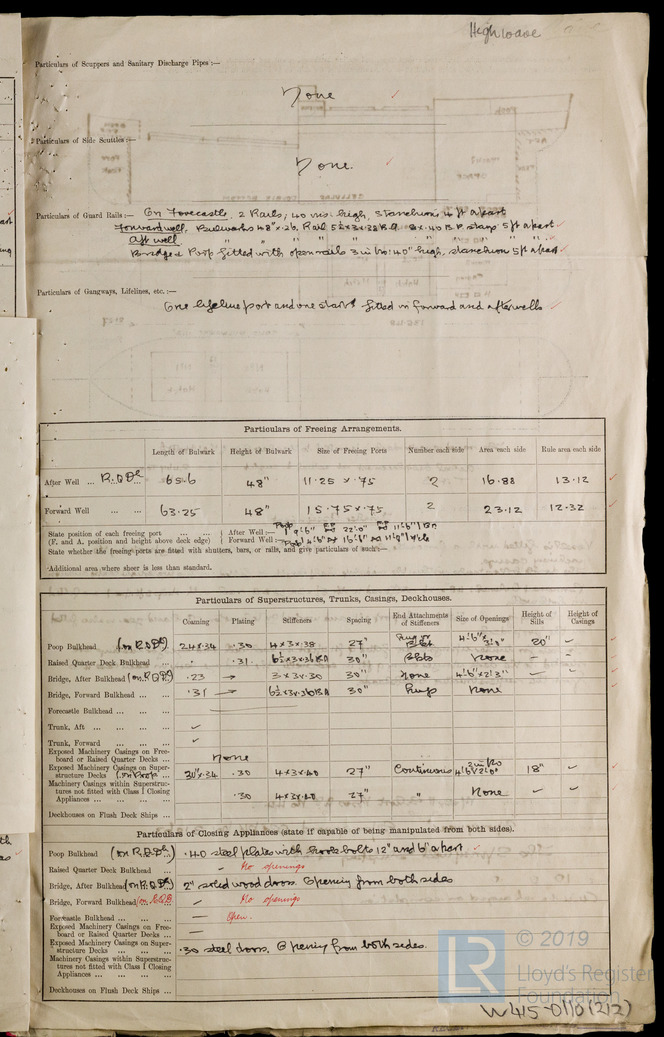 High wave
Particulars of Scuppers and Sanitary Discharge Pipes :—
None
Particulars of Side Scuttles :—
None.
Particulars of Guard Rails :— On Forecastle. 2 Rails, 40 ins. high, Stanchions 4 ft apart
Forward well. Bulwarks 48" x .26, Rail 5½ x 3 x .38 B.A. 8 x .40 B.P. stays 5 ft apart
Aft well " " " " " "
Bridge & Poop fitted with open rails 3 in No: 40" high, stanchion 5 ft apart
Particulars of Gangways, Lifelines, etc. :—
One lifeline port and one starb'd fitted in forward and after wells
Particulars of Freeing Arrangements.
Length of Bulwark Height of Bulwark Size of Freeing Ports Number each side Area each side Rule area each side
After Well ... R.Q.Dk 65.6 48" 11.25 x .75 2 16.88 13.12
Forward Well ... ... 63.25 48" 15.75 x .75 2 23.12 12.32
State position of each freeing port ... ... After Well :—
(F. and A. position and height above deck edge) Forward Well :—
State whether the freeing ports are fitted with shutters, bars, or rails, and give particulars of such :—
Additional area where sheer is less than standard.
Particulars of Superstructures, Trunks, Casings, Deckhouses.
Coaming Plating Stiffeners Spacing End Attachments of Stiffeners Size of Openings Height of Sills Height of Casings
Poop Bulkhead (on R.Q.Dk) 24 x .34 .30 4 x 3 x .38 27" 4'.6" x 20" –
Raised Quarter Deck Bulkhead ... .31 6½ x 3 x .36 BA 30" Bkts None – –
Bridge, After Bulkhead (on R.Q.Dk) .23 → 3 x 3 x .30 30" None 4'.6" x 2'3" – –
Bridge, Forward Bulkhead ... .31 → 6½ x 3 x .36 BA 30" None
Forecastle Bulkhead ... ...
Trunk, Aft ... ... ✓
Trunk, Forward ... ... ✓
Exposed Machinery Casings on Free-
board or Raised Quarter Decks ... None
Exposed Machinery Casings on Super-
structure Decks (on Poop) ... 30" x .34 .30 4 x 3 x .40 27" Continuous 2 in No 4'.6" x 2'.0" 18" –
Machinery Casings within Superstruc-
tures not fitted with Class I Closing
Appliances ... ... ... .30 4 x 3 x .40 27" " None – –
Deckhouses on Flush Deck Ships ...
Particulars of Closing Appliances (state if capable of being manipulated from both sides).
Poop Bulkhead (on R.Q.Dk) .40 steel plates with hook bolts 12" and 6" apart
Raised Quarter Deck Bulkhead ... – No openings
Bridge, After Bulkhead (on R.Q.Dk) 2" solid wood doors. Opening from both sides
Bridge, Forward Bulkhead – No openings
Forecastle Bulkhead ... ... — Open.
Exposed Machinery Casings on Free-
board or Raised Quarter Decks ... —
Exposed Machinery Casings on Super-
structure Decks ... ... .30 steel doors. Opening from both sides.
Machinery Casings within Superstruc-
tures not fitted with Class I Closing
Appliances ... ... ...
Deckhouses on Flush Deck Ships ...
LR © 2019
Lloyd's Register
Foundation
W415-0110 (2/2)